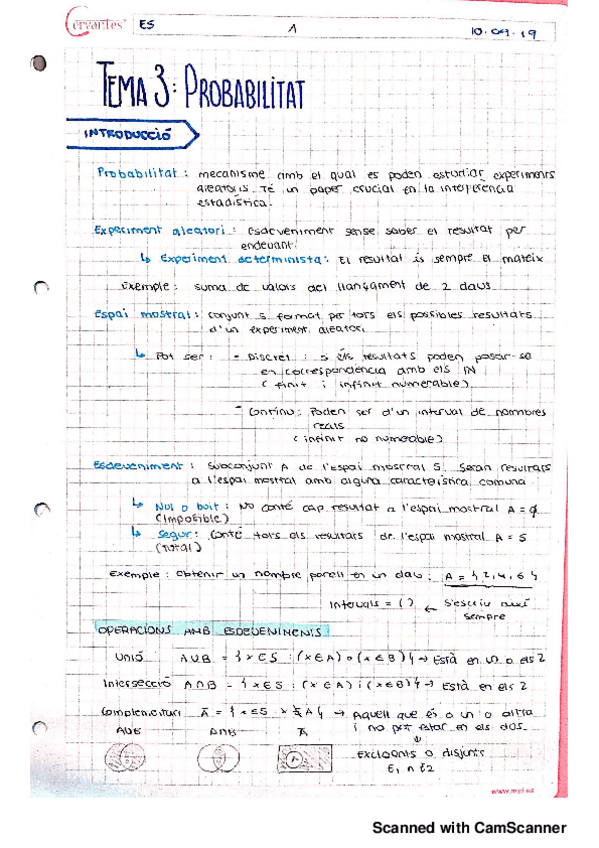 Cervantes ES 1 10.09.19
TEMA 3: PROBABILITAT
INTRODUCCIÓ
Probabilitat: mecanisme amb el qual es poden estudiar experiments
aleatoris. Té un paper crucial en la inteferència
estadística.
Experiment aleatori: Esdeveniment sense saber el resultat per
endevant.
↳ Experiment determinista: El resultat és sempre el mateix
Exemple: suma de valors del llançament de 2 daus
Espai mostral: conjunt S format per tots els possibles resultats
d'un experiment aleatori
↳ Pot ser: - Discret: S els resultats poden posar-se
en correspondència amb els IN
(finit i infinit numerable)
- Continu: Poden ser d'un interval de nombres
reals
(infinit no numerable)
Esdeveniment: subconjunt A de l'espai mostral S. Seran resultats
a l'espai mostral amb alguna característica comuna
↳ Nul o buit: No conté cap resultat a l'espai mostral A = ∅
(Impossible)
↳ Segur: Conté tots els resultats de l'espai mostral A = S
(Total)
Exemple: obtenir un nombre parell en un dau: A = {2,4,6}
Intervals = () ← S'escriu així
sempre
OPERACIONS AMB ESDEVENIMENTS:
Unió A∪B = {x∈S : (x∈A) o (x∈B)} → Està en un o els 2
Intersecció A∩B = {x∈S : (x∈A) i (x∈B)} → Està en els 2
Complementari Ā = {x∈S x∉A} → Aquell que és o un o altra
A∪B A∩B Ā i no pot estar en els dos.
Excloents o disjunts
A
E1 ∩ E2
Scanned with CamScanner